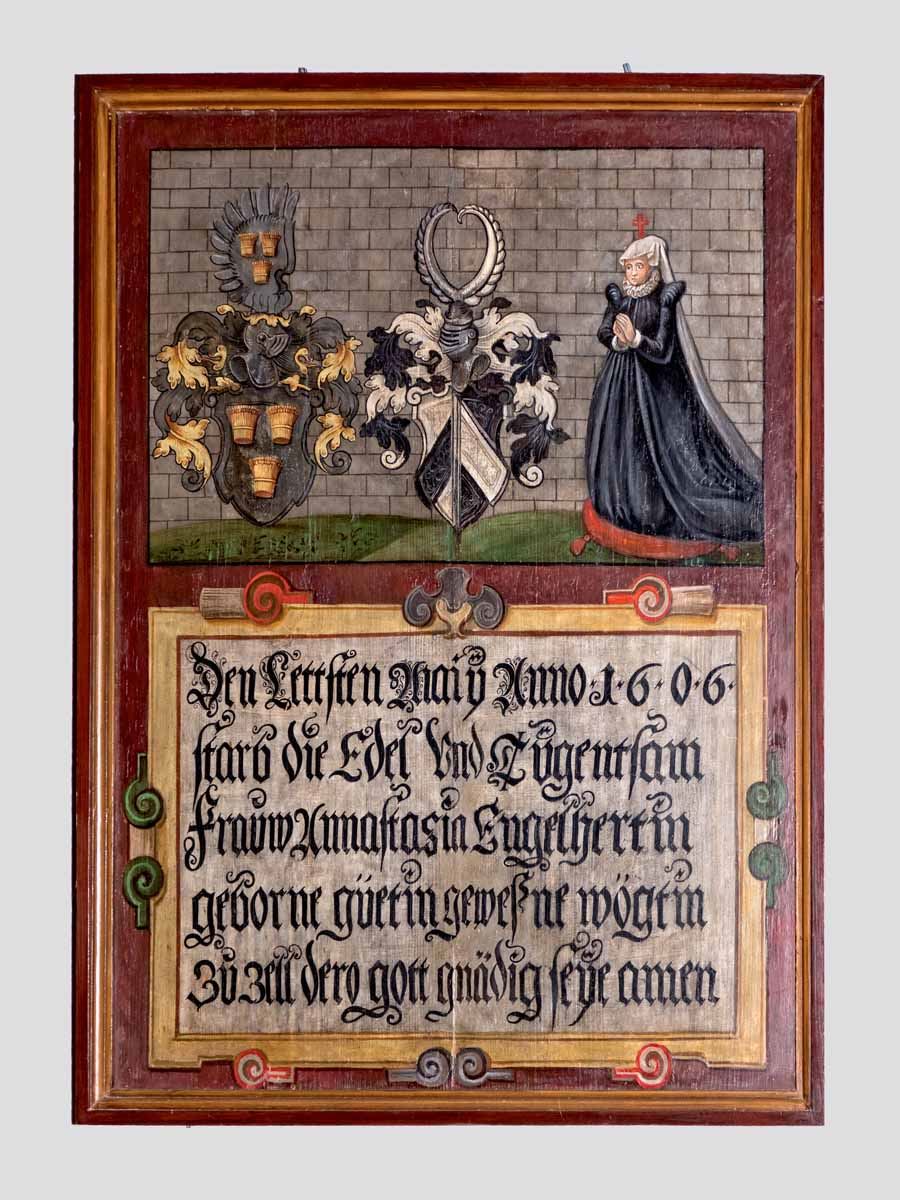 Den Lettsten Maiÿ Anno·1·6·0·6·
starb die Edel Vnd Tŭgentsam
Fraŭw Annastasia Engelhertin
geborne gŭetin geweßne vögtin
Zŭ Zell dero gott gnädig seÿe amen